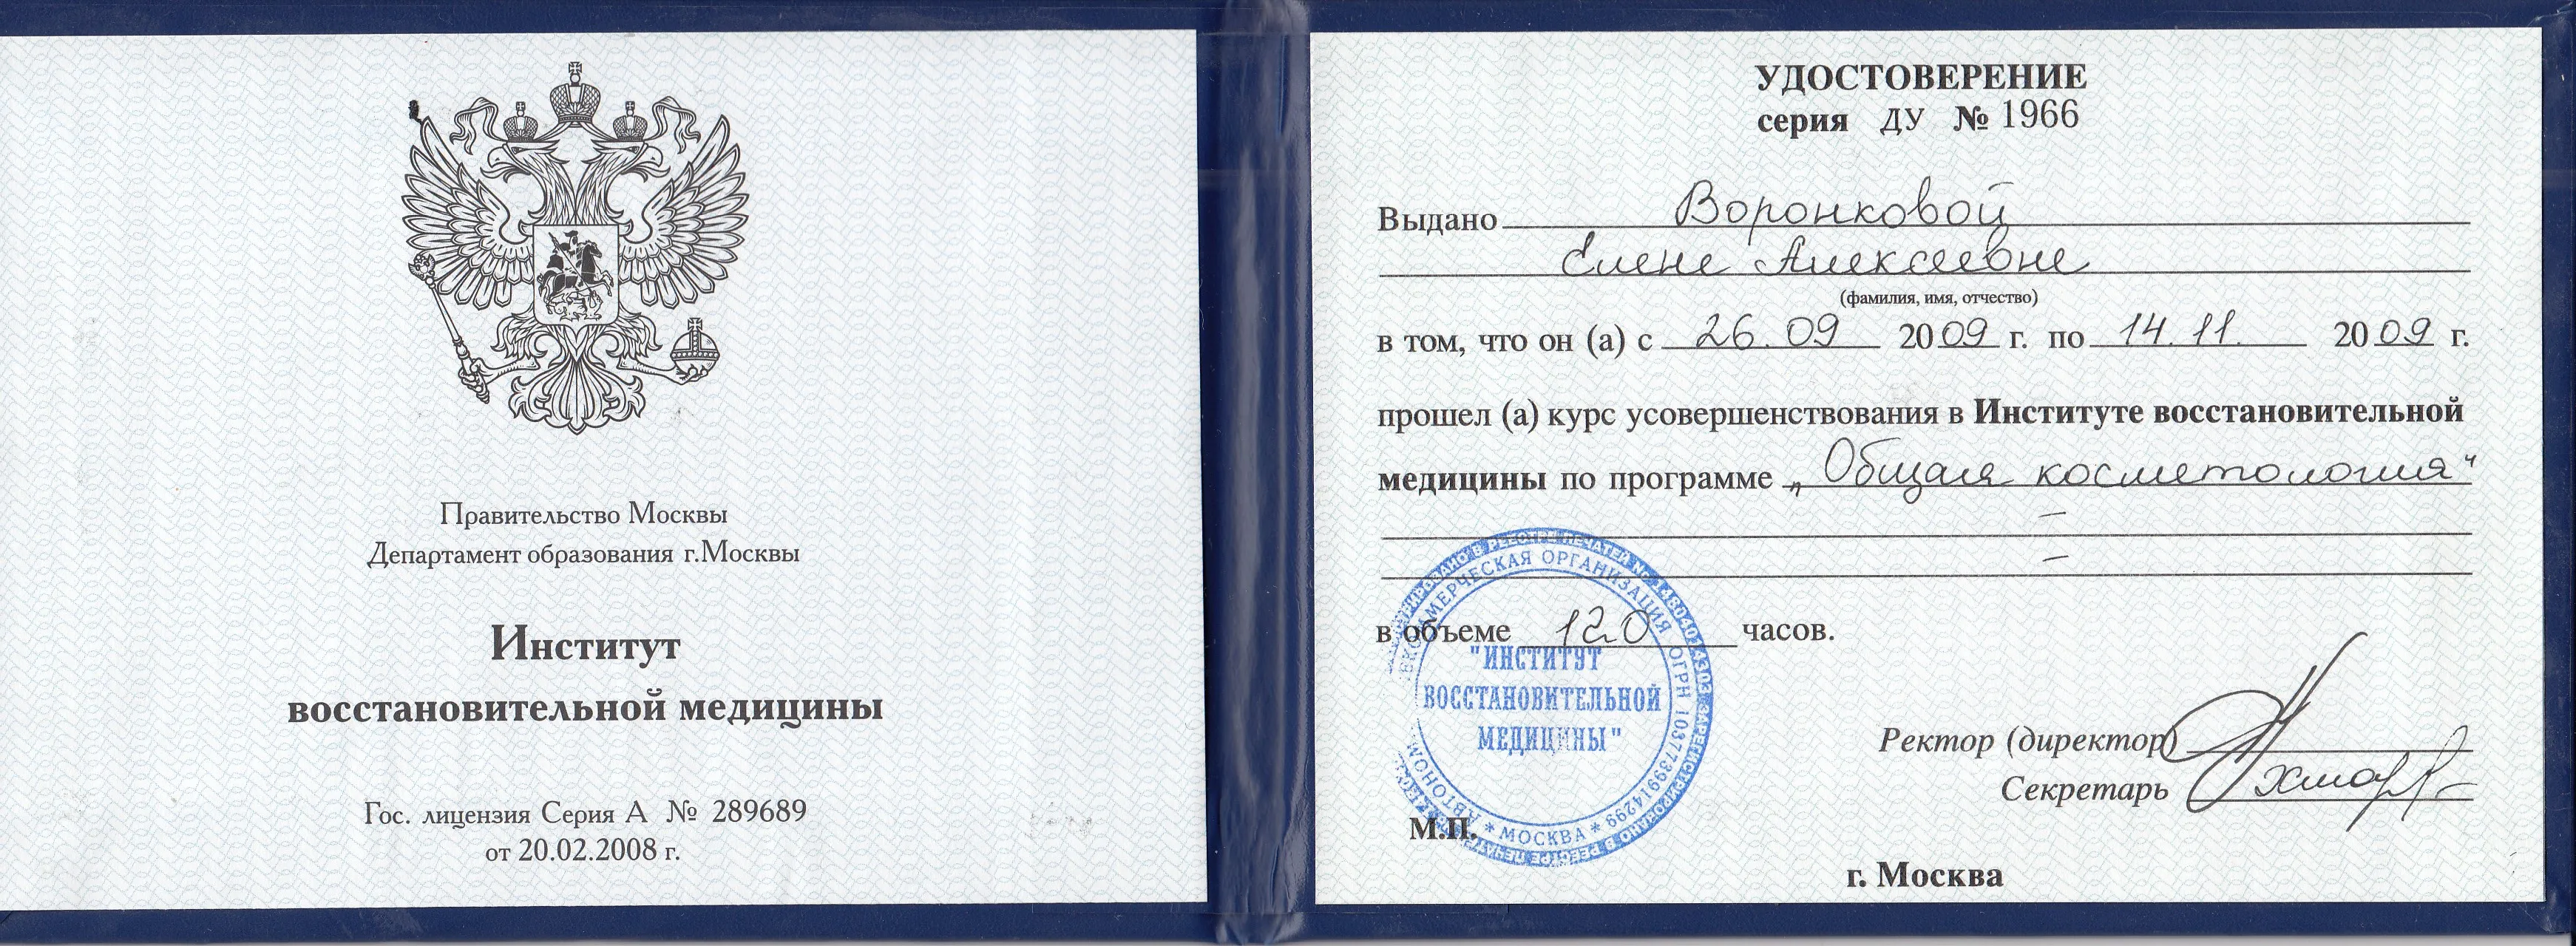 Правительство Москвы
Департамент образования г.Москвы
Институт
восстановительной медицины
Гос. лицензия Серия А № 289689
от 20.02.2008 г.
УДОСТОВЕРЕНИЕ
серия ДУ № 1966
Выдано Воронковой
Елене Алексеевне
(фамилия, имя, отчество)
в том, что он (а) с 26.09 2009 г. по 14.11. 2009 г.
прошел (а) курс усовершенствования в Институте восстановительной
медицины по программе „Общая косметология“
–
–
в объеме 120 часов.
НЕКОММЕРЧЕСКАЯ ОРГАНИЗАЦИЯ ОГРН 1037739914299
* МОСКВА *
"ИНСТИТУТ
ВОССТАНОВИТЕЛЬНОЙ
МЕДИЦИНЫ"
Ректор (директор)
Секретарь
М.П.
г. Москва